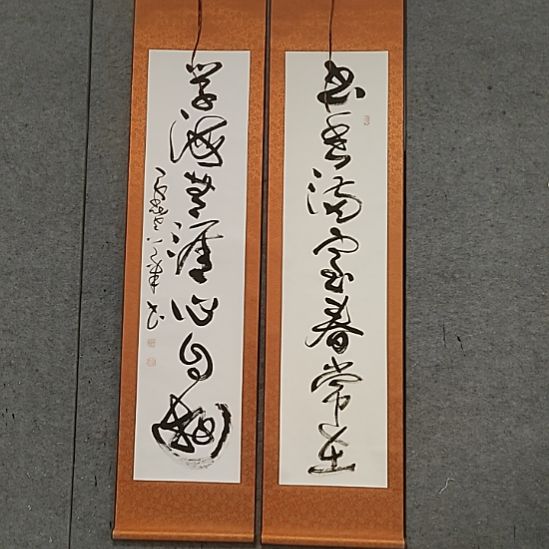 书香满室春常在
学海无涯心自翱